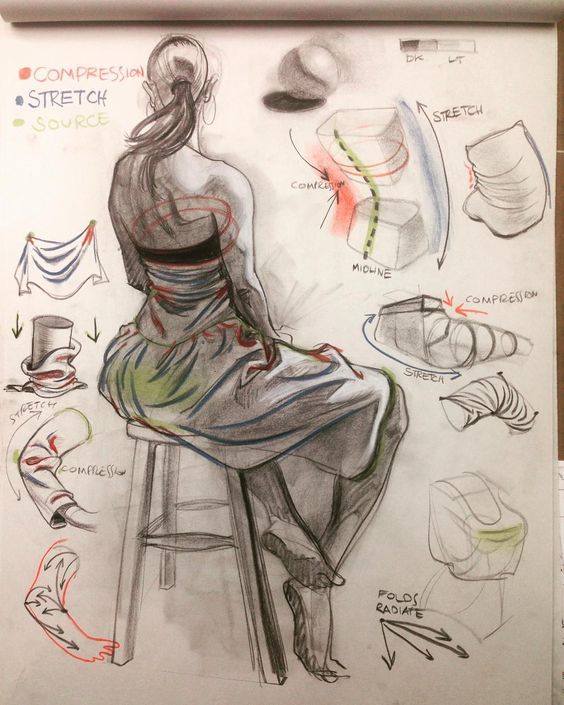 COMPRESSION
STRETCH
SOURCE
DK LT
STRETCH
COMPRESSION
MIDLINE
COMPRESSION
STRETCH
STRETCH
COMPRESSION
FOLDS
RADIATE